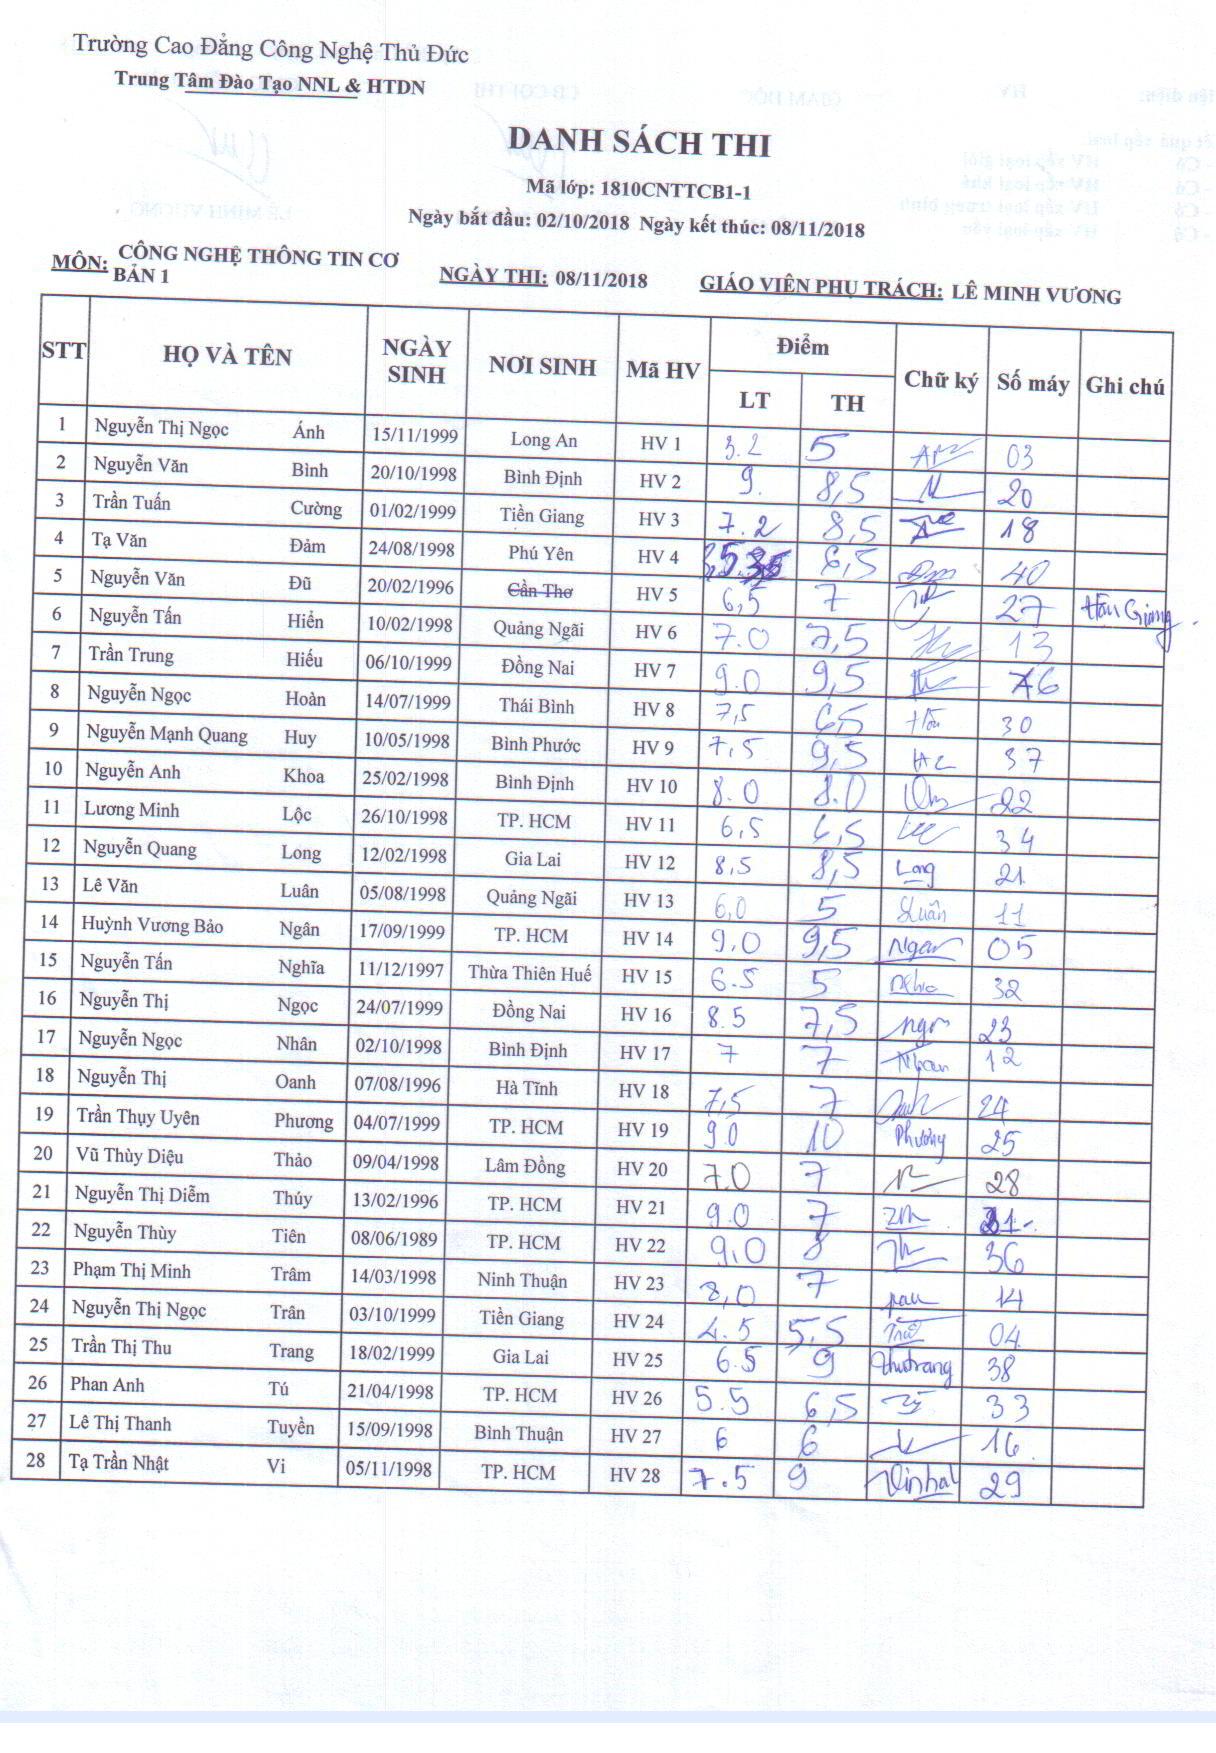 Trường Cao Đẳng Công Nghệ Thủ Đức
Trung Tâm Đào Tạo NNL & HTDN
DANH SÁCH THI
Mã lớp: 1810CNTTCB1-1
Ngày bắt đầu: 02/10/2018 Ngày kết thúc: 08/11/2018
MÔN: CÔNG NGHỆ THÔNG TIN CƠ BẢN 1 NGÀY THI: 08/11/2018 GIÁO VIÊN PHỤ TRÁCH: LÊ MINH VƯƠNG
STT HỌ VÀ TÊN NGÀY SINH NƠI SINH Mã HV Điểm Chữ ký Số máy Ghi chú
LT TH
1 Nguyễn Thị Ngọc Ánh 15/11/1999 Long An HV 1 3.2 5 03
2 Nguyễn Văn Bình 20/10/1998 Bình Định HV 2 9. 8,5 20
3 Trần Tuấn Cường 01/02/1999 Tiền Giang HV 3 7.2 8,5 18
4 Tạ Văn Đảm 24/08/1998 Phú Yên HV 4 3,5 6,5 40
5 Nguyễn Văn Đũ 20/02/1996 Cần Thơ HV 5 6,5 7 27 Hậu Giang
6 Nguyễn Tấn Hiển 10/02/1998 Quảng Ngãi HV 6 7.0 7,5 13
7 Trần Trung Hiếu 06/10/1999 Đồng Nai HV 7 9.0 9,5
8 Nguyễn Ngọc Hoàn 14/07/1999 Thái Bình HV 8 7,5 6,5 30
9 Nguyễn Mạnh Quang Huy 10/05/1998 Bình Phước HV 9 7,5 9,5 37
10 Nguyễn Anh Khoa 25/02/1998 Bình Định HV 10 8.0 8.0 22
11 Lương Minh Lộc 26/10/1998 TP. HCM HV 11 6,5 6,5 34
12 Nguyễn Quang Long 12/02/1998 Gia Lai HV 12 8,5 8,5 Long 21
13 Lê Văn Luân 05/08/1998 Quảng Ngãi HV 13 6,0 5 Luân 11
14 Huỳnh Vương Bảo Ngân 17/09/1999 TP. HCM HV 14 9.0 9,5 Ngan 05
15 Nguyễn Tấn Nghĩa 11/12/1997 Thừa Thiên Huế HV 15 6.5 5 32
16 Nguyễn Thị Ngọc 24/07/1999 Đồng Nai HV 16 8.5 7,5 23
17 Nguyễn Ngọc Nhân 02/10/1998 Bình Định HV 17 7 7 Nhan 12
18 Nguyễn Thị Oanh 07/08/1996 Hà Tĩnh HV 18 7,5 7 24
19 Trần Thụy Uyên Phương 04/07/1999 TP. HCM HV 19 9.0 10 Phương 25
20 Vũ Thùy Diệu Thảo 09/04/1998 Lâm Đồng HV 20 7.0 7 28
21 Nguyễn Thị Diễm Thúy 13/02/1996 TP. HCM HV 21 9.0 7
22 Nguyễn Thùy Tiên 08/06/1989 TP. HCM HV 22 9,0 8 36
23 Phạm Thị Minh Trâm 14/03/1998 Ninh Thuận HV 23 8,0 7 14
24 Nguyễn Thị Ngọc Trân 03/10/1999 Tiền Giang HV 24 4.5 5,5 04
25 Trần Thị Thu Trang 18/02/1999 Gia Lai HV 25 6.5 9 thutrang 38
26 Phan Anh Tú 21/04/1998 TP. HCM HV 26 5.5 6,5 33
27 Lê Thị Thanh Tuyền 15/09/1998 Bình Thuận HV 27 6 6 16
28 Tạ Trần Nhật Vi 05/11/1998 TP. HCM HV 28 7.5 9 29